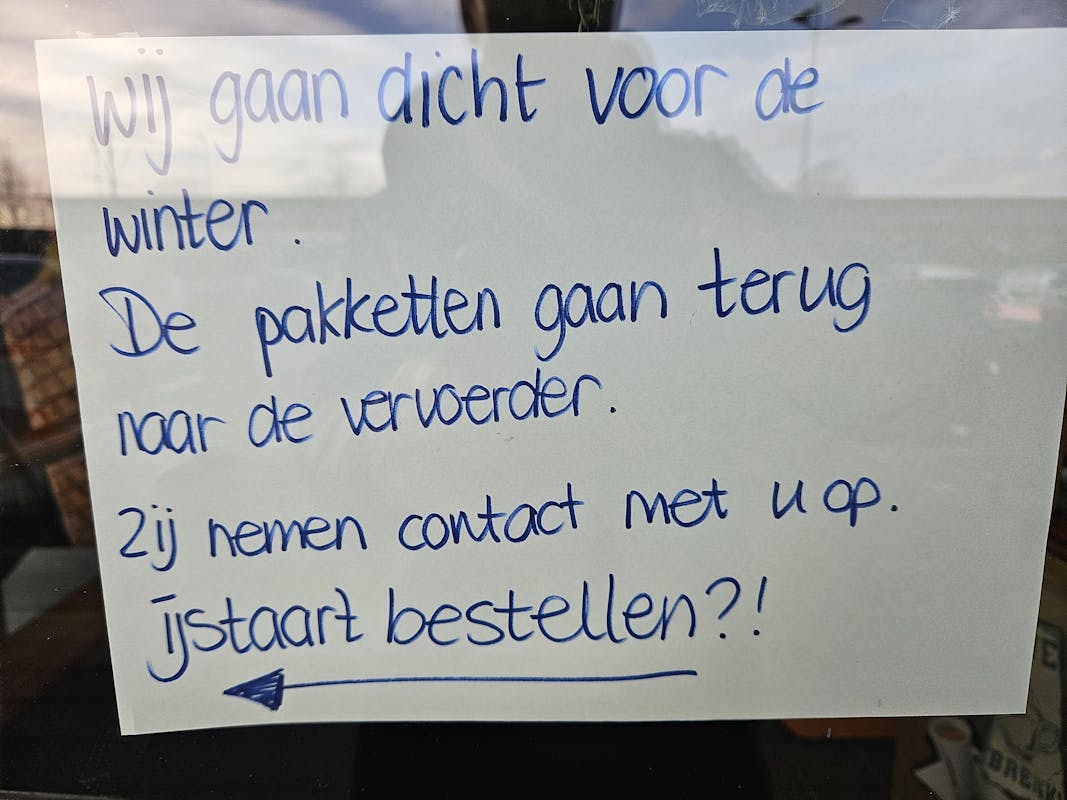 wij gaan dicht voor de
winter.
De pakketten gaan terug
naar de vervoerder.
Zij nemen contact met u op.
ijstaart bestellen?!